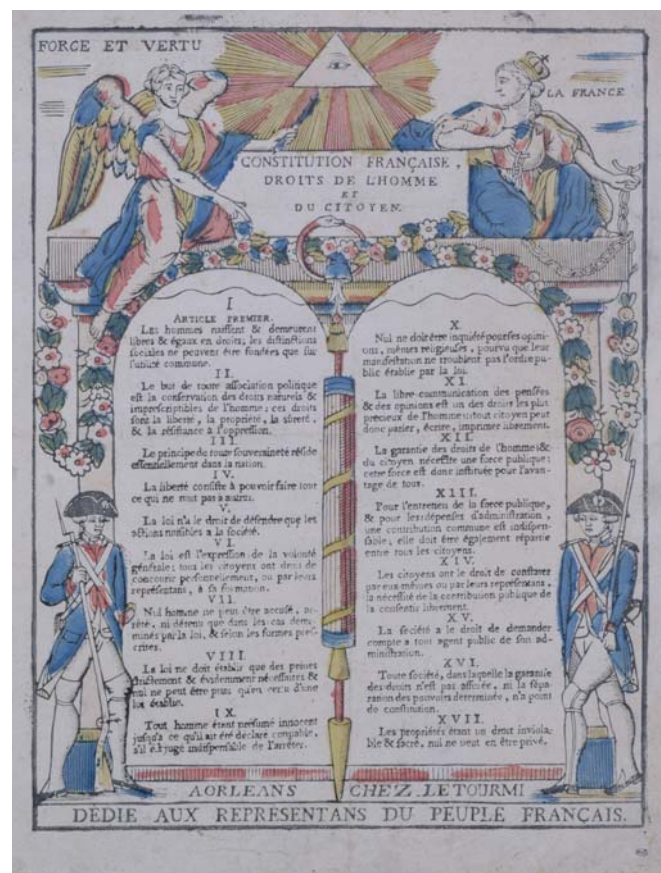 FORCE ET VERTU
LA FRANCE
CONSTITUTION FRANÇAISE,
DROITS DE L'HOMME
ET
DU CITOYEN.
I
ARTICLE PREMIER.
Les hommes naissent & demeurent
libres & égaux en droits; les distinctions
sociales ne peuvent être fondées que sur
l'utilité commune.
II.
Le but de toute association politique
est la conservation des droits naturels &
imprescriptibles de l'homme; ces droits
sont la liberté, la propriété, la sûreté,
& la résistance à l'oppression.
III.
Le principe de toute souveraineté réside
essentiellement dans la nation.
IV.
La liberté consiste à pouvoir faire tout
ce qui ne nuit pas à autrui.
V.
La loi n'a le droit de défendre que les
actions nuisibles à la société.
VI.
La loi est l'expression de la volonté
générale; tous les citoyens ont droit de
concourir personnellement, ou par leurs
représentans, à sa formation.
VII.
Nul homme ne peut être accusé, ar-
rêté, ni détenu que dans les cas déter-
minés par la loi, & selon les formes pres-
crites.
VIII.
La loi ne doit établir que des peines
strictement & évidemment nécessaires &
nul ne peut être puni qu'en vertu d'une
loi établie.
IX.
Tout homme étant présumé innocent
jusqu'à ce qu'il ait été déclaré coupable,
s'il est jugé indispensable de l'arrêter.
X.
Nul ne doit être inquiété pour ses opini-
ons, mêmes religieuses, pourvu que leur
manifestation ne troublent pas l'ordre pu-
blic établie par la loi.
XI.
La libre communication des pensées
& des opinions est un des droits les plus
précieux de l'homme: tout citoyen peut
donc parler, écrire, imprimer librement.
XII.
La garantie des droits de l'homme &
du citoyen nécessite une force publique;
cette force est donc instituée pour l'avan-
tage de tous.
XIII.
Pour l'entretien de la force publique,
& pour les dépenses d'administration,
une contribution commune est indispen-
sable; elle doit être également répartie
entre tous les citoyens.
XIV.
Les citoyens ont le droit de constater
par eux-mêmes ou par leurs représentans,
la nécessité de la contribution publique de
la consentir librement.
XV.
La société a le droit de demander
compte à tout agent public de son ad-
ministration.
XVI.
Toute société, dans laquelle la garantie
des droits n'est pas assurée, ni la sépa-
ration des pouvoirs déterminée, n'a point
de constitution.
XVII.
Les propriétés étant un droit inviola-
ble & sacré, nul ne peut en être privé.
A ORLEANS CHEZ LETOURMI
DÉDIÉ AUX REPRÉSENTANS DU PEUPLE FRANÇAIS.